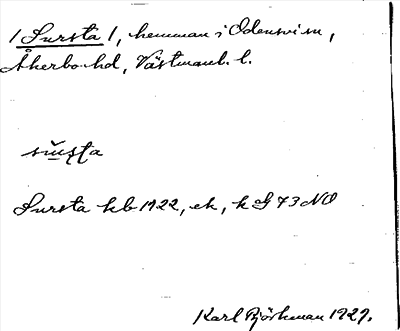 /Sursta/, hemman i Odensvi sn,
Åkerbo hd, Västmanl. l.
Sursta kb 1922, ek, k G 73 NO
Karl Björkman 1929.